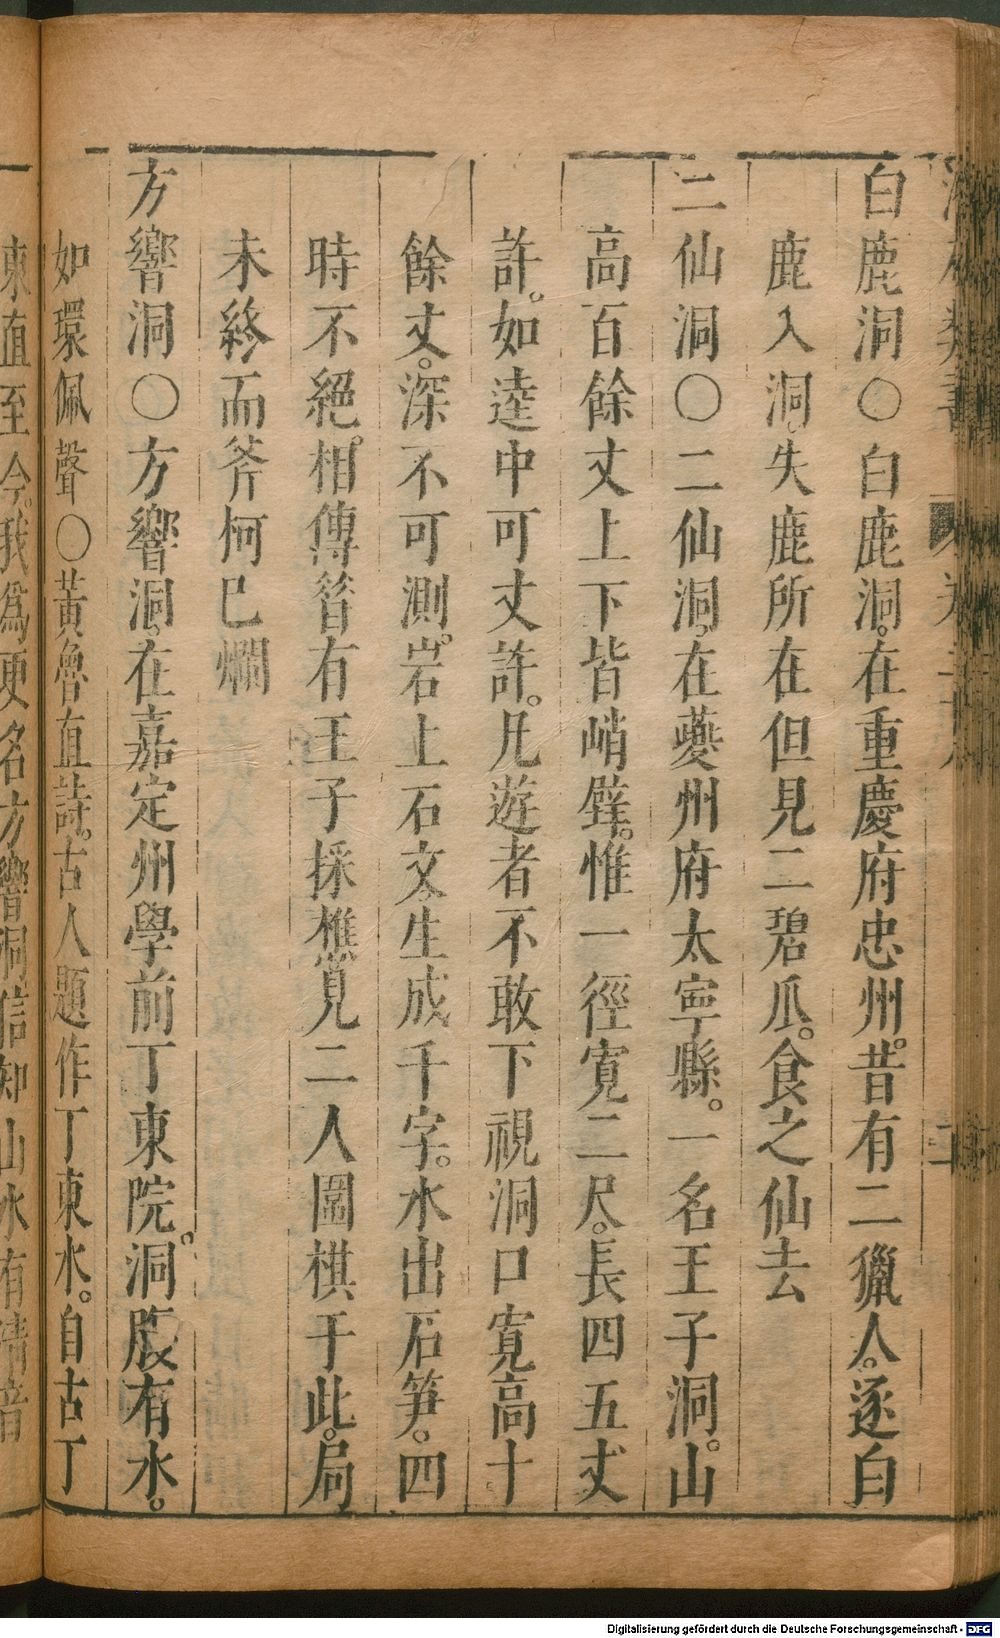 白鹿洞○白鹿洞。在重慶府忠州。昔有二獵人。逐白
鹿入洞。失鹿所在但見二碧瓜。食之仙去
二仙洞○二仙洞。在夔州府太寧縣。一名王子洞。山
高百餘丈上下皆峭壁。惟一徑寬二尺。長四五丈
許。如逵中可丈許。凡遊者不敢下視洞口寬高十
餘丈。深不可測。岩上石文。生成千字。水出石笋。四
時不絕。相傳昝有王子採樵見二人圍棋于此。局
未終而斧柯已爛
方響洞○方響洞。在嘉定州學前丁東院。洞腹有水。
如環佩聲○黃魯直詩。古人題作丁東水。自古丁
東直至今。我爲更名方響洞信知山水有清音
Digitalisierung gefördert durch die Deutsche Forschungsgemeinschaft - DFG